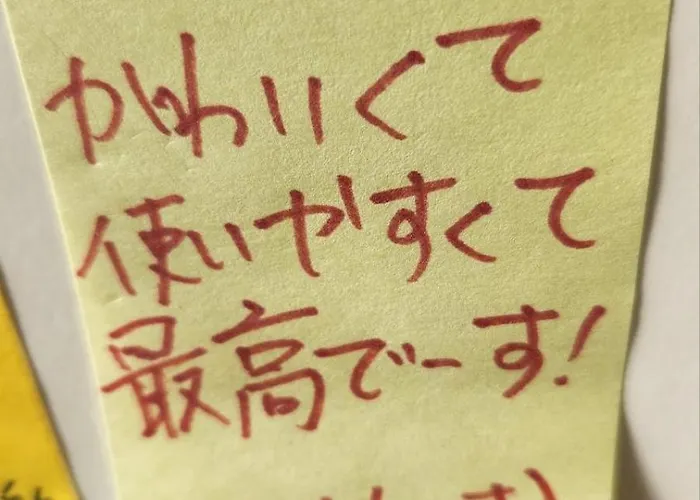 かわいくて
使いやすくて
最高でーす!